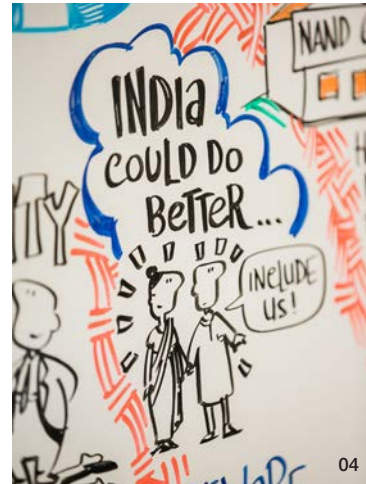 NAND
INDIa
COULD DO
BETTER...
INCLUDE
US!
04